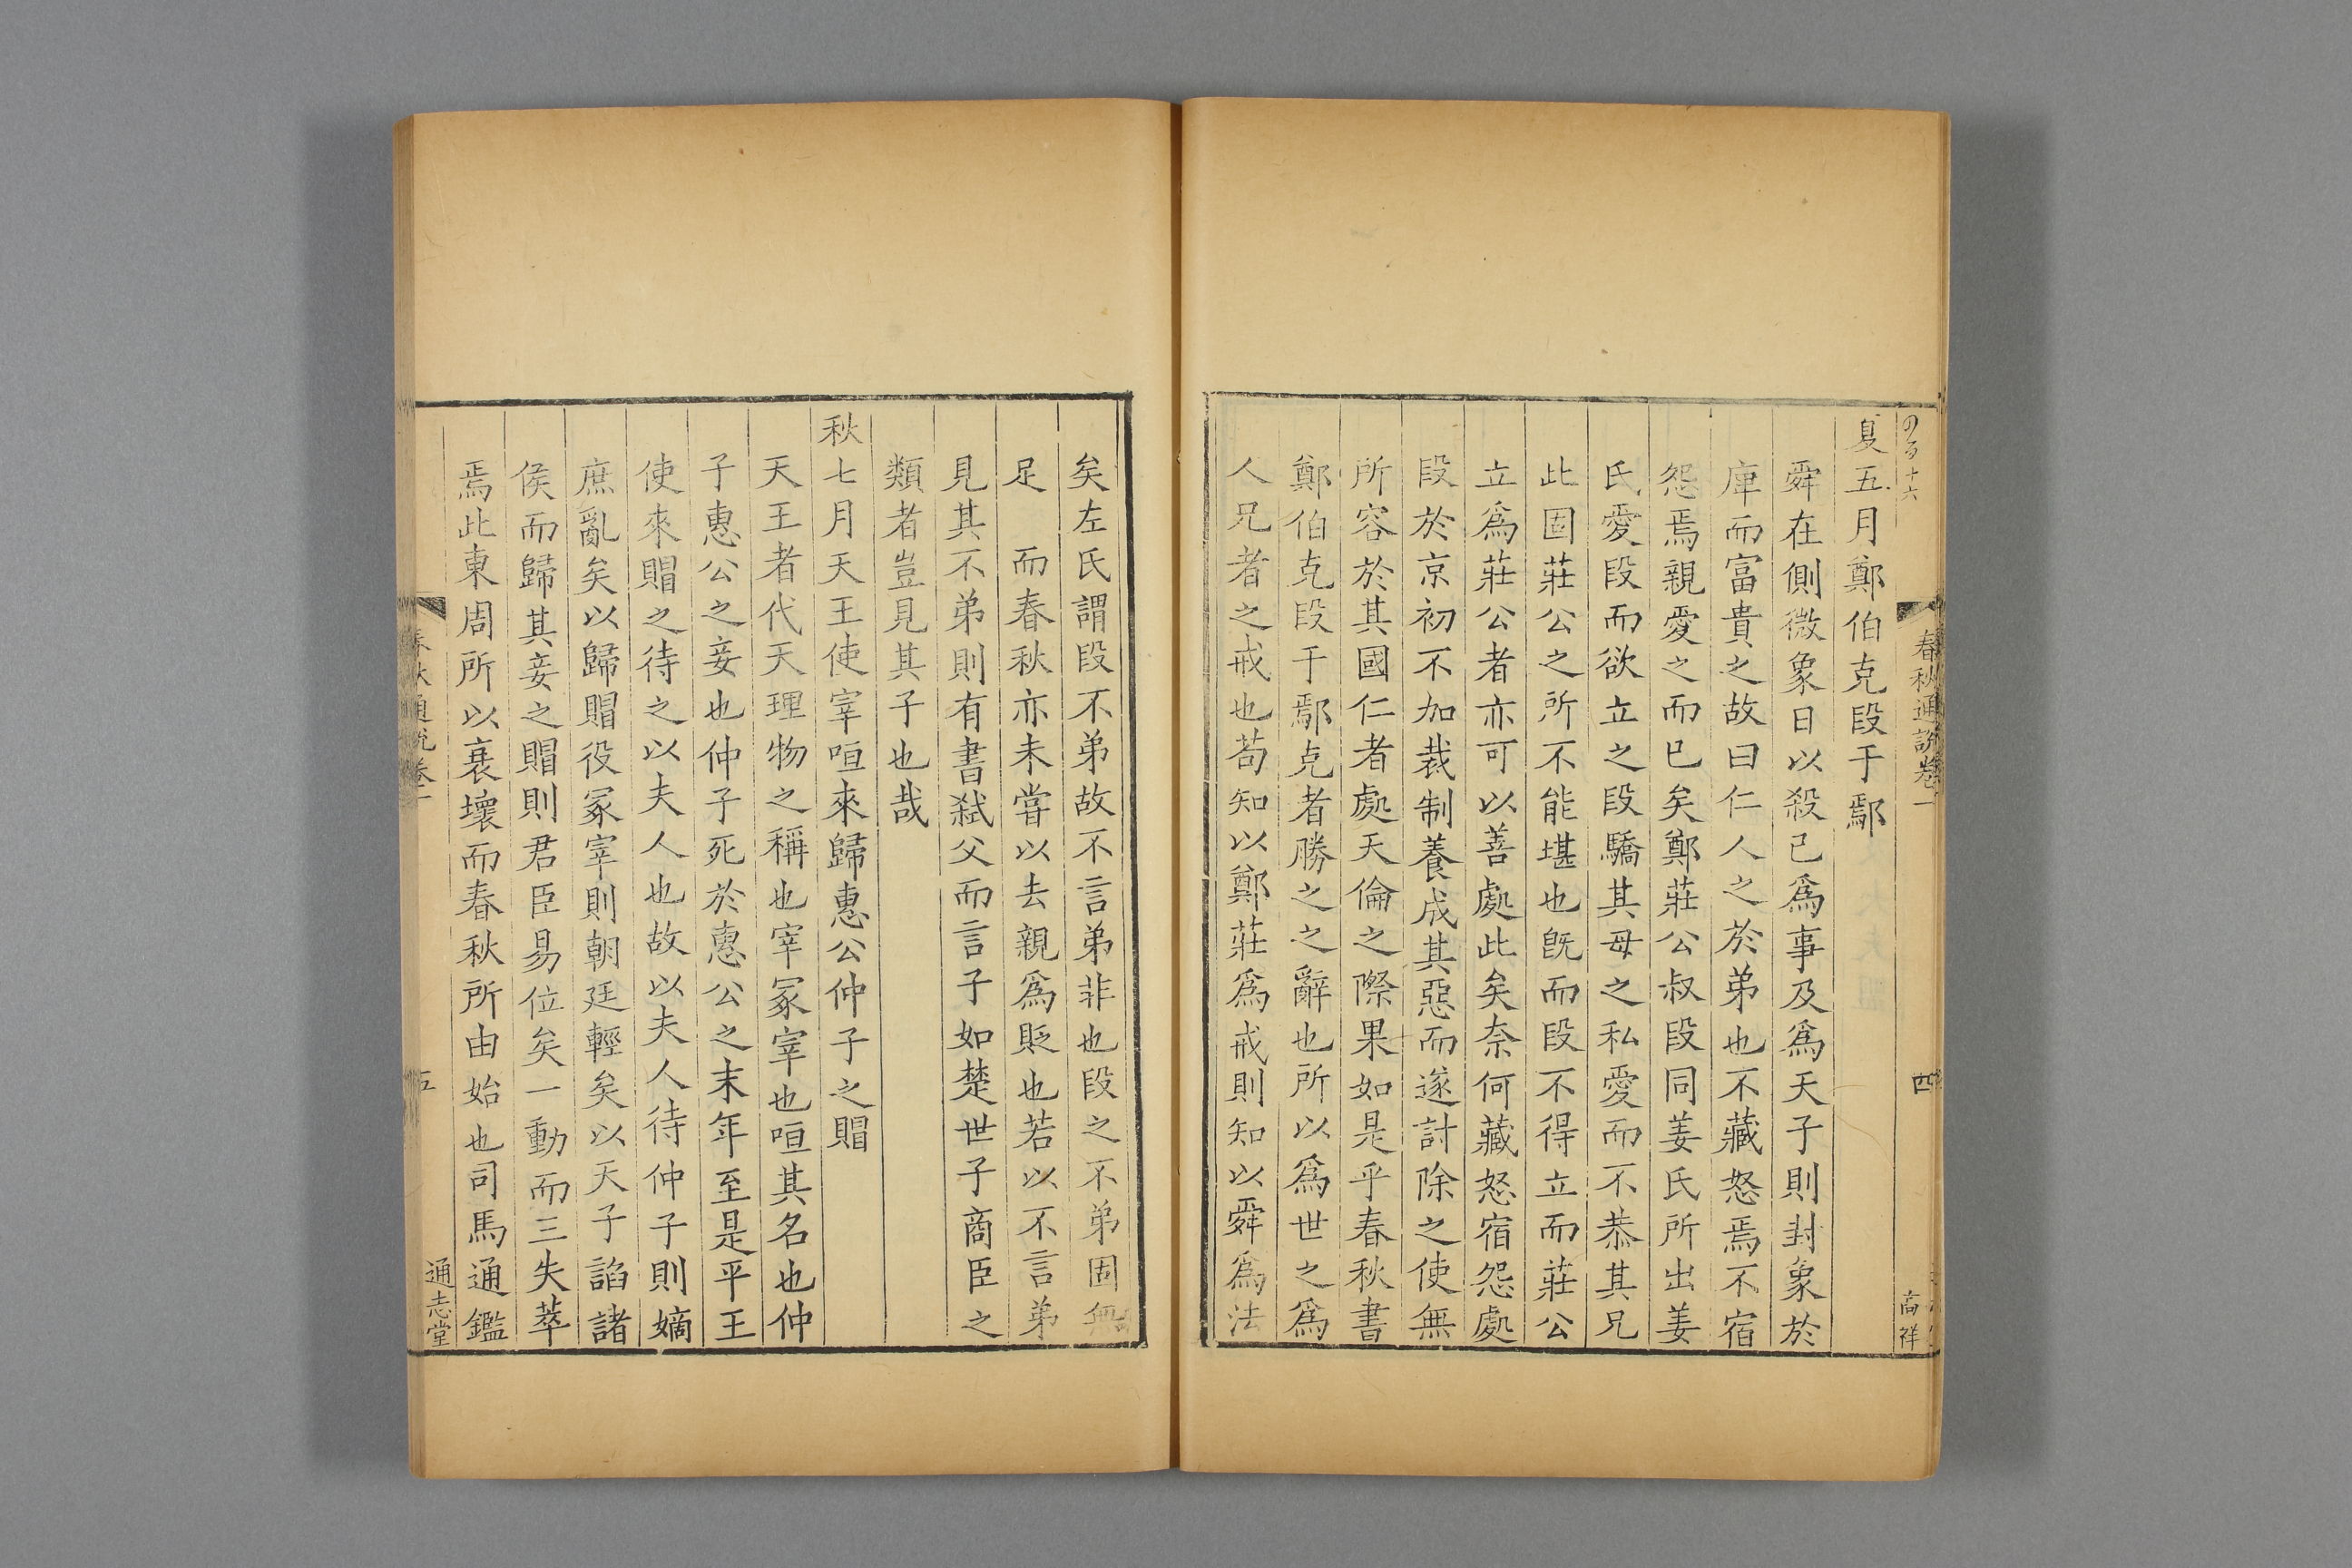 春秋通說卷一
四
高祥
夏五月鄭伯克段于鄢
舜在側微象日以殺己爲事及爲天子則封象於
庳而富貴之故曰仁人之於弟也不藏怒焉不宿
怨焉親愛之而已矣鄭莊公叔段同姜氏所出姜
氏愛段而欲立之段驕其母之私愛而不恭其兄
此固莊公之所不能堪也旣而段不得立而莊公
立爲莊公者亦可以善處此矣奈何藏怒宿怨處
段於京初不加裁制養成其惡而遂討除之使無
所容於其國仁者處天倫之際果如是乎春秋書
鄭伯克段于鄢克者勝之之辭也所以爲世之爲
人兄者之戒也苟知以鄭莊爲戒則知以舜爲法
矣左氏謂段不弟故不言弟非也段之不弟固無
足 而春秋亦未嘗以去親爲貶也若以不言弟
見其不弟則有書弑父而言子如楚世子商臣之
類者豈見其子也哉
秋七月天王使宰咺來歸惠公仲子之賵
天王者代天理物之稱也宰冢宰也咺其名也仲
子惠公之妾也仲子死於惠公之末年至是平王
使來賵之待之以夫人也故以夫人待仲子則嫡
庶亂矣以歸賵役冢宰則朝廷輕矣以天子諂諸
侯而歸其妾之賵則君臣易位矣一動而三失萃
焉此東周所以衰壞而春秋所由始也司馬通鑑
春秋通說卷一
五
通志堂